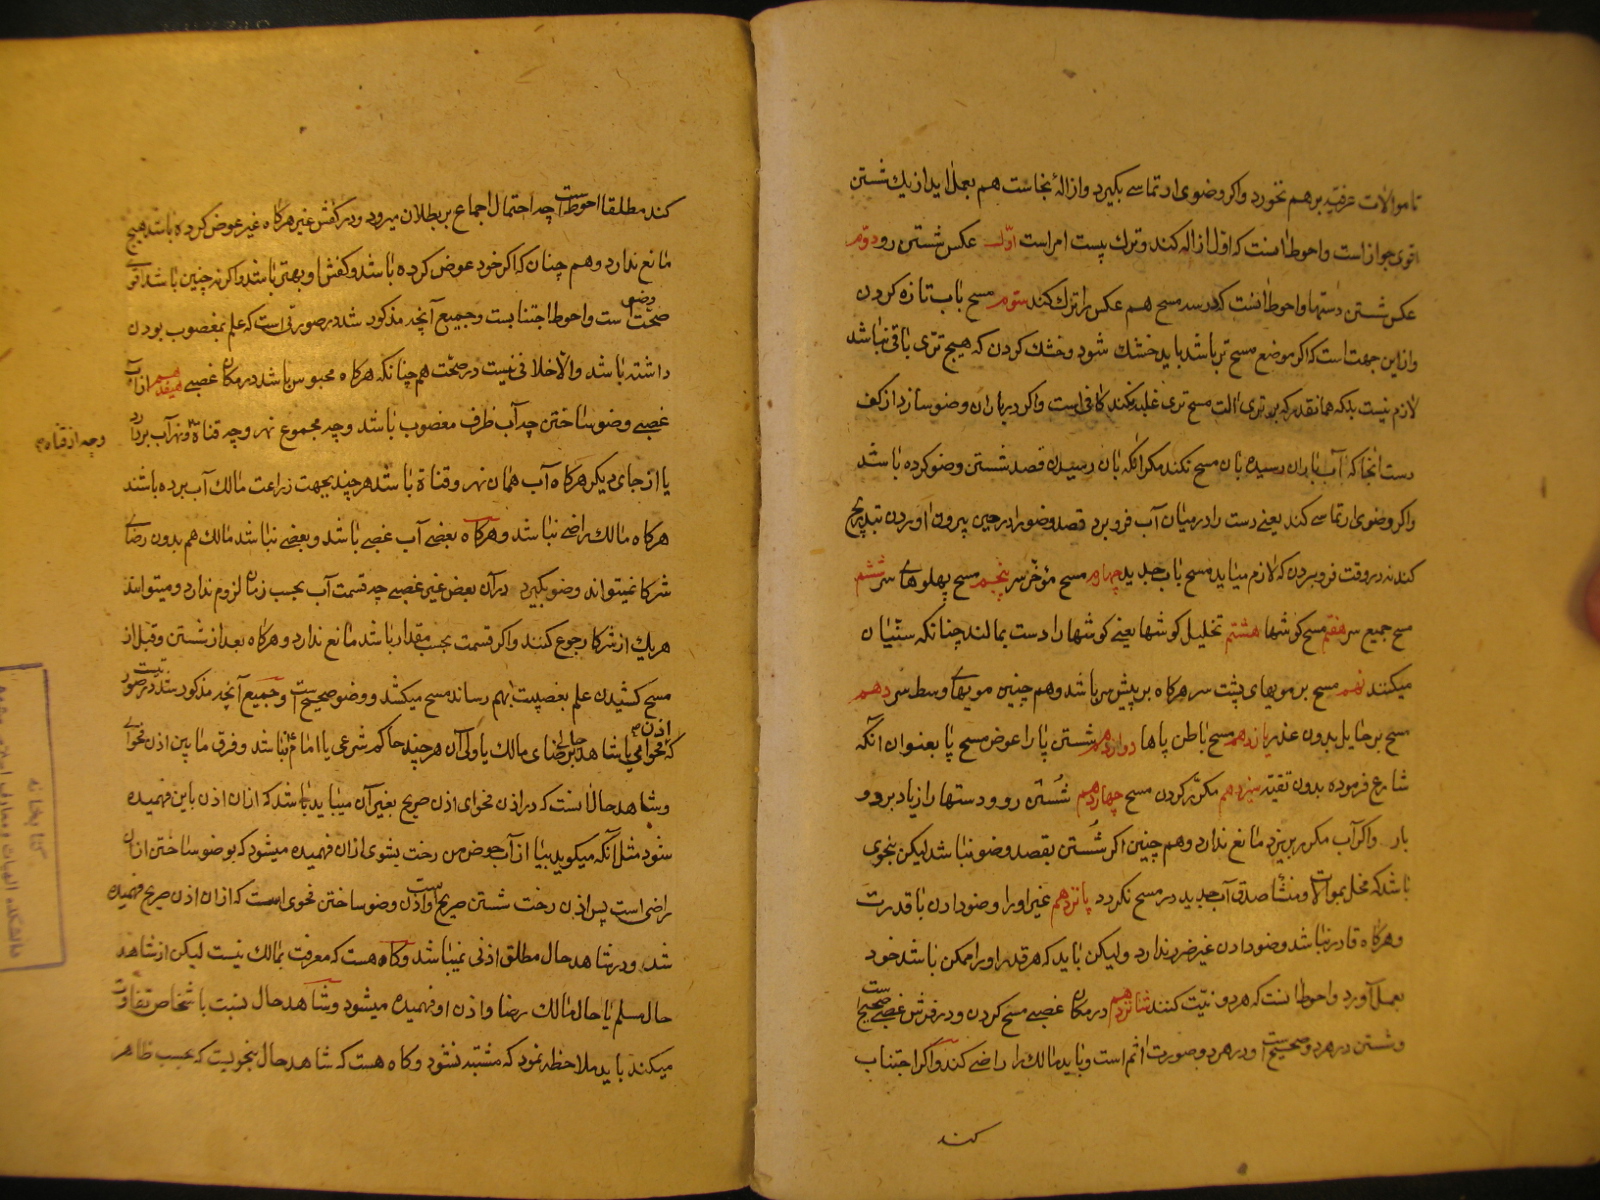 تا موالات عرفیه بر هم نخورد و اکر وضوی ارتماسے بکیرد و ازالهٔ نجاست هم بعمل اید از یك شستن
اقوی جواز است و احوط انست که اول ازاله کند و ترك بیست امر است اوّل عکس شستن رو دوّم
عکس شستن دستها و احوط انست که در سر مسح هم عکس را ترك کند سوّم مسح باب تازه کردن
و از این جهت است که اکر موضع مسح تر باشد باید خشك شود و خشك کردن که هیچ تری باقی نباشد
لازم نیست بلکه همانقدر که بر تری الت مسح تری غلبه نکند کافی است و اکر در باران وضو سازد از کف
دست انجا که آب باران رسیده بان مسح نکند مکر انکه بان رسیدن قصد شستن وضو کرده باشد
و اکر وضوی ارتماسے کند یعنے دست را در میان آب فرو برد قصد وضو را در حین بیرون اوردن بتدریج
کند نه در وقت فرو بردن که لازم میاید مسح باب جدید چهارم مسح مؤخر سر پنجم مسح پهلوهاے سر ششم
مسح جمیع سر هفتم مسح کوشها هشتم تخلیل کوشها یعنے کوشها را دست بمالند چنانکه سنّیان
میکنند نهم مسح بر مویهای پشت سر هرکاه بر پیش سر باشد و هم چنین مویهاے وسط سر دهم
مسح بر حایل بدون عذر یازدهم مسح باطن پاها دوازدهم شستن پا را عوض مسح پا بعنوان انکه
شارع فرموده بدون تقیّه سیزدهم مکرّر کردن مسح چهاردهم شستن رو و دستها را زیاد بر دو
بار و اکر آب مکرر بریزد مانع ندارد و هم چنین اکر شستن بقصد وضو نباشد لیکن بنحوی
باشد که مخل بموالات و منشأ صدق آب جدید در مسح نکردد پانزدهم غیر او را وضو دادن با قدرت
و هرکاه قادر نباشد وضو دادن غیر ضرر ندارد و لیکن باید که هر قدر او را ممکن باشد خود
بعمل آورد و احوط انست که هر دو نیّت کنند شانزدهم در مکان غصبے مسح کردن و در فرش غصبے صحیح است
و شستن در هر دو صحیح است و در هر دو صورت اثم است و باید مالك را راضے کند و اکر اجتناب
کند
کند مطلقا احوط است چه احتمال اجماع بر بطلان میرود و در کفش غیر هرکاه غیر عوض کرده باشد هیچ
مانع ندارد و هم چنان که اکر خود عوض کرده باشد و کفش او بهتر باشد و اکر نه چنین باشد اقوے
صحّت وضو است و احوط اجتنابست و جمیع آنچه مذکور شد در صورتی است که علم بمغصوب بودن
داشته باشد و الّا خلافی نیست در صحّت هم چنانکه هرکاه محبوس باشد در مکان غصبے هیفدهم از آب
غصبے وضو ساختن چه آب ظرف مغصوب باشد و چه مجموع نهر و چه قناة و نهر آب بردارد
و چه از قناة
یا از جای دیکر هرکاه آب همان نهر و قناة باشد هر چند بجهت زراعت مالك آب برده باشند
هرکاه مالك راضے نباشد و هرکاه بعضے آب غصبے باشد و بعضے نباشد مالك هم بدون رضای
شرکا نمیتواند وضو بکیرد در آن بعض غیر غصبے چه قسمت آب بحسب زمان لزوم ندارد و میتوانند
هر یك از شرکا رجوع کنند و اکر قسمت بحسب مقدار باشد مانع ندارد و هرکاه بعد از شستن و قبل از
مسح کشیدن علم بغصبیت بهم رساند مسح میکشد و وضو صحیح است و جمیع آنچه مذکور شد در صورتیست
که اذن فحوائی یا شاهد حالی برضای مالك یا ولی آن هر چند حاکم شرعی یا امام ع نباشد و فرق ما بین اذن فحواے
و شاهد حال انست که در اذن فحوای اذن صریح بغیر آن میباید باشد که از ان اذن باین فهمیده
شود مثل انکه میکوید بیا از آب حوض من رخت بشوی از ان فهمیده میشود که بوضو ساختن از ان
راضی است پس اذن رخت شستن صریح است و اذن وضو ساختن فحوی است که از ان اذن صریح فهمیده
شد و در شاهد حال مطلق اذنی نمیباشد و کاه هست که معرفت بمالك نیست لیکن از شاهد
حال مسلم یا حال مالك رضا و اذن او فهمیده میشود و شاهد حال نسبت باشخاص تفاوت
میکند باید ملاحظه نمود که مشتبه نشود و کاه هست که شاهد حال بنحویست که بحسب ظاهر
کتابخانه
دانشکده الهیات و معارف اسلامی مشهد